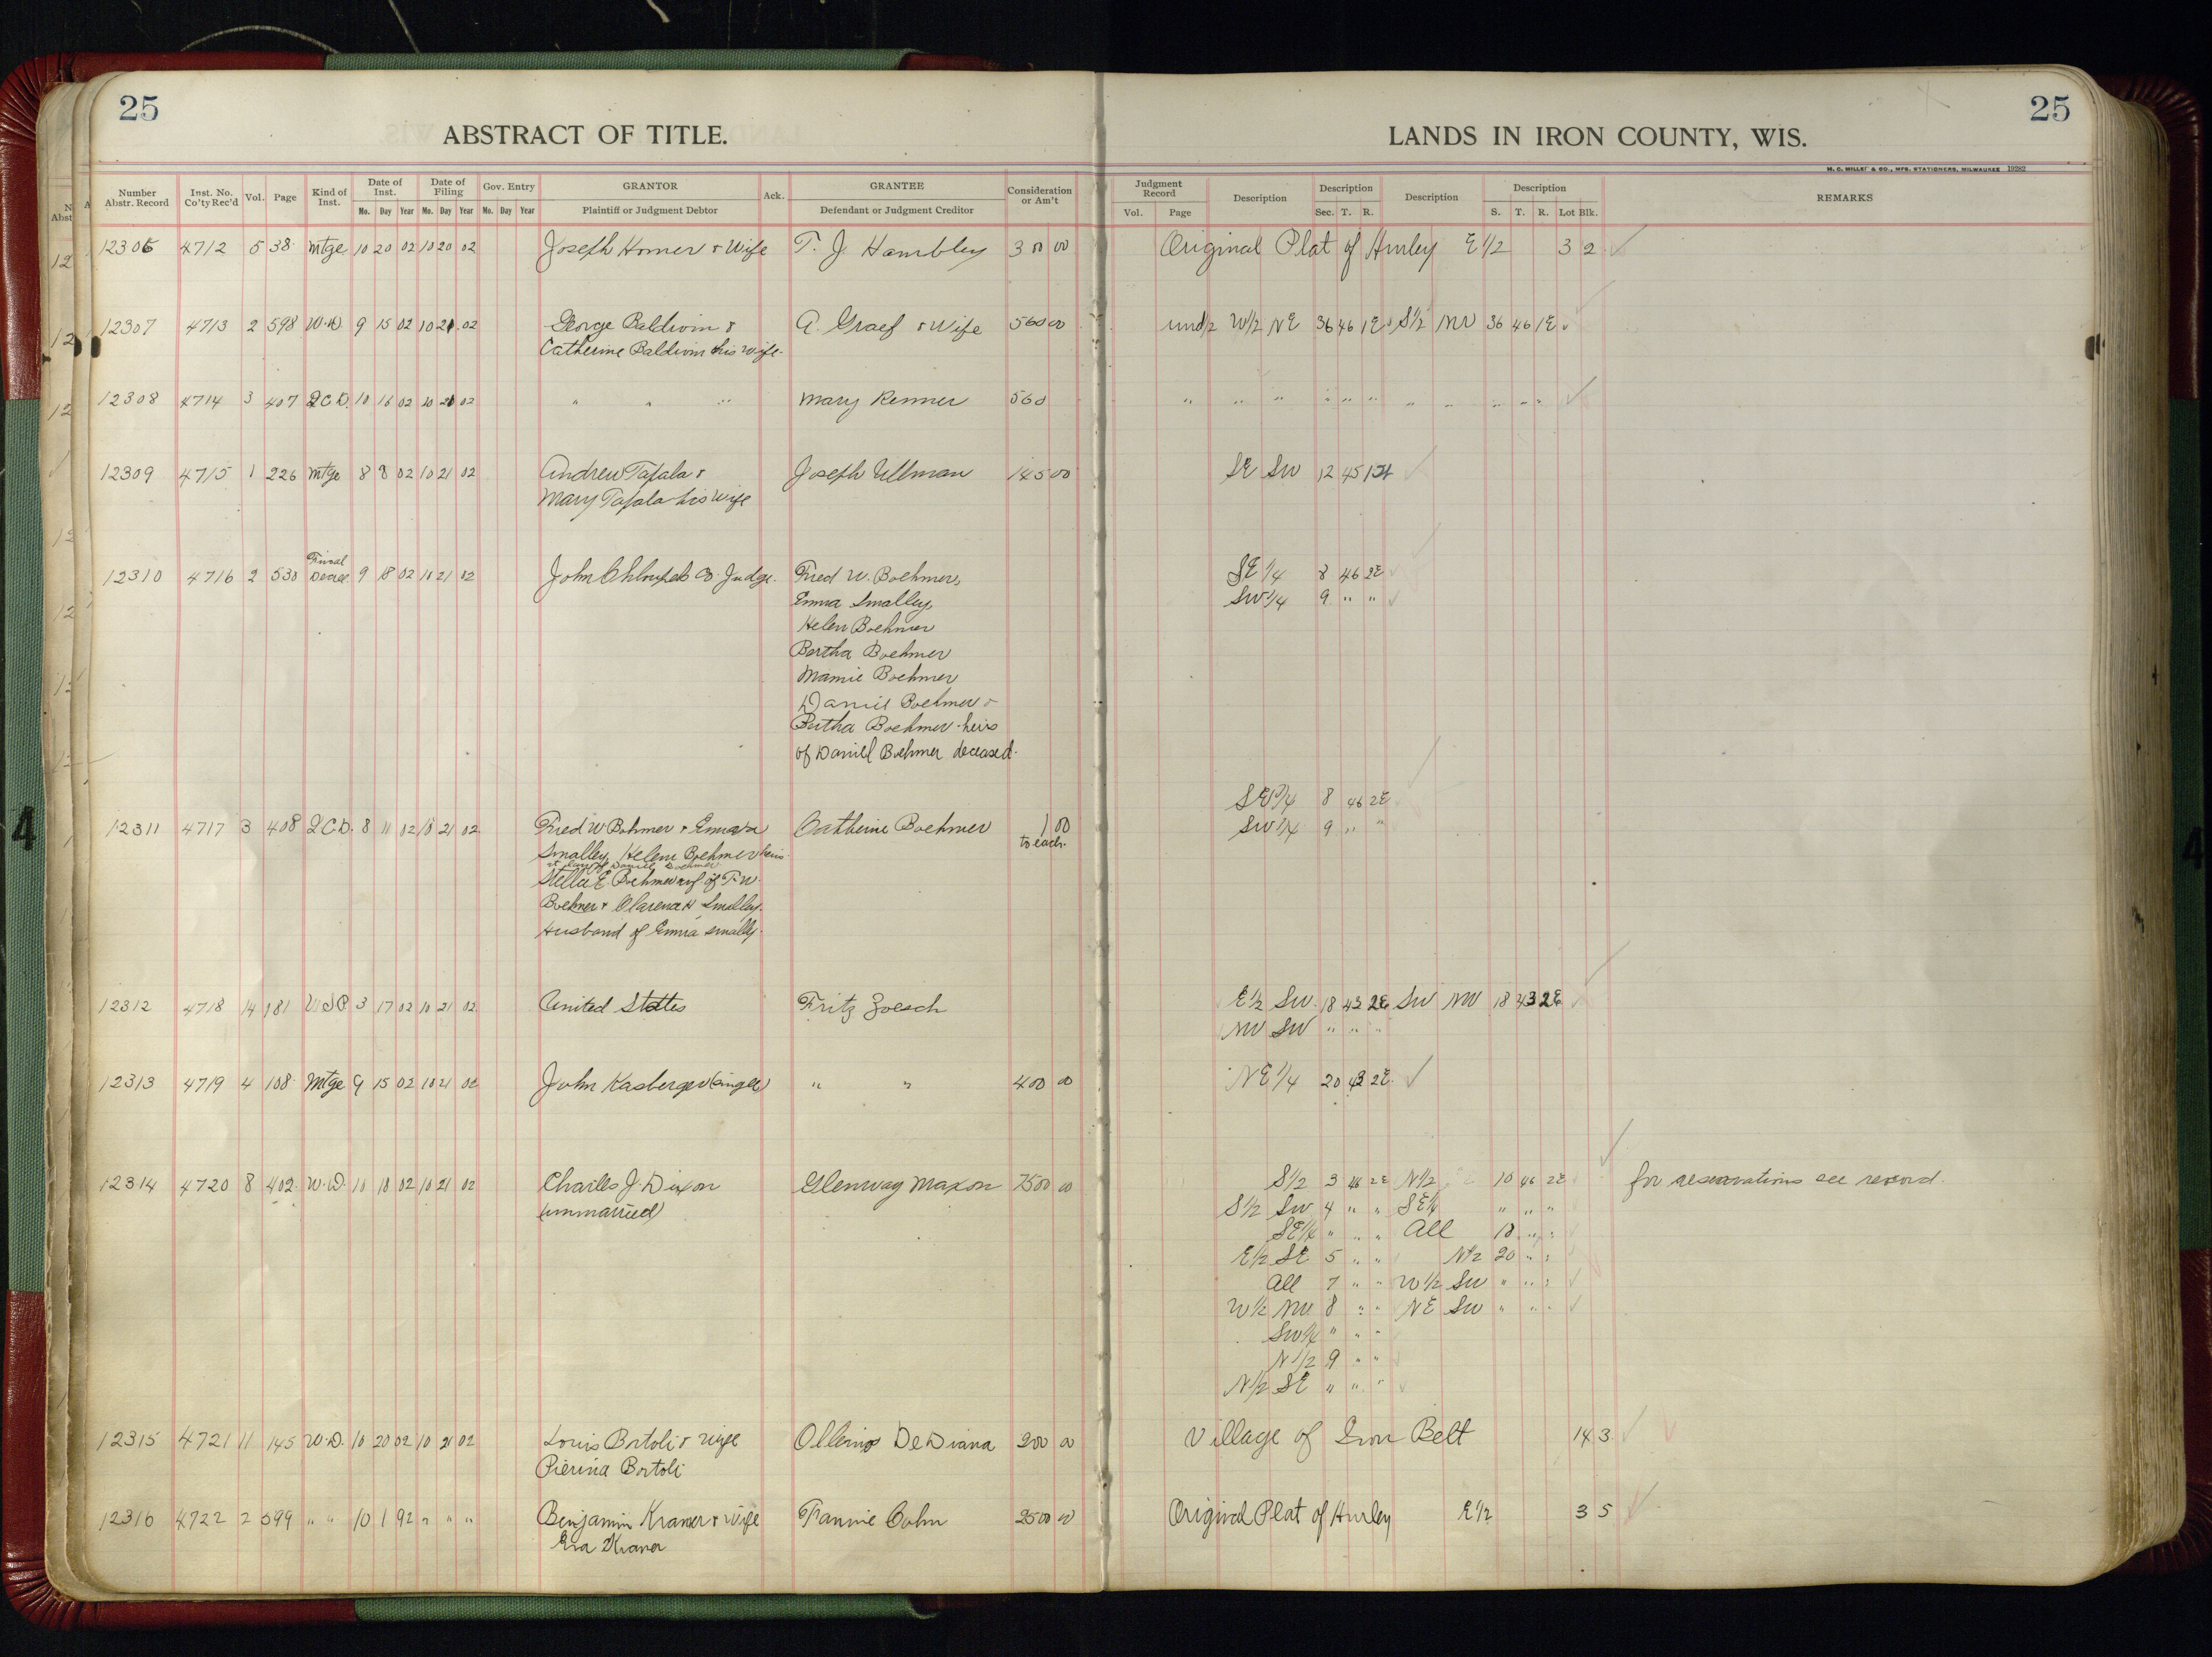 25
ABSTRACT OF TITLE.
LANDS IN IRON COUNTY, WIS.
25
M. C. MILLER & CO., MFG. STATIONERS, MILWAUKEE 19282
Number Abstr. Record Inst. No. Co'ty Rec'd Vol. Page Kind of Inst. Date of Inst. Mo. Day Year Date of Filing Mo. Day Year Gov. Entry Mo. Day Year GRANTOR Plaintiff or Judgment Debtor Ack. GRANTEE Defendant or Judgment Creditor Consideration or Am't Judgment Record Vol. Page Description Description Sec. T. R. Description Description S. T. R. Lot Blk. REMARKS
12306 4712 5 38 Mtge 10 20 02 10 20 02 Joseph Homer & Wife T. J. Hambley 300 00 Original Plat of Hurley E 1/2 3 2
12307 4713 2 598 W.D. 9 15 02 10 21 02 George Baldwin & A. Graef & Wife 560 00 und 1/2 W 1/2 NE 36 46 1E S 1/2 NW 36 46 1E
Catherine Baldwin his wife
12308 4714 3 407 Q.C.D. 10 16 02 10 21 02 " " " Mary Renner 560 " " " " " " " " " " "
12309 4715 1 226 Mtge 8 8 02 10 21 02 Andrew Tafala & Joseph Ullman 145 00 SE SW 12 45 1
Mary Tafala his wife
12310 4716 2 530 Final Decree 9 18 02 10 21 02 John Co. Judge. Fred W. Boehmer, SE 1/4 8 46 2E
Emma Smalley, SW 1/4 9 " "
Helen Boehmer
Bertha Boehmer
Mamie Boehmer
Daniel Boehmer &
Boehmer heirs
of Daniel Boehmer deceased.
SE 1/4 8 46 2E
12311 4717 3 408 Q.C.D. 8 11 02 10 21 02 Fred W Bohmer & Emma Catherine Boehmer 1 00 SW 1/4 9 " "
Smalley, Helene Boehmer heirs to each.
at law of Daniel Boehmer
Stella E Boehmer wf. of F. W.
Boehmer & Clarence H Smalley.
Husband of Emma Smally.
12312 4718 14 181 U.S.P. 3 17 02 10 21 02 United States Fritz Zoesch E 1/2 SW 18 43 2E SW NW 18 43 2E
NW SW " " "
12313 4719 4 108 Mtge 9 15 02 10 21 02 John Kasberger (single) " " 400 00 NE 1/4 20 43 2E
12314 4720 8 402 W.D. 10 18 02 10 21 02 Charles J. Dixon Glenway Maxon 7500 00 S 1/2 3 46 2E N 1/2 10 46 2E for reservations see record.
(unmarried) S 1/2 SW 4 " " SE 1/4 " " "
SE 1/4 " " " All 18 " "
E 1/2 SE 5 " " N 1/2 20 " "
All 7 " " W 1/2 SW " " "
W 1/2 NW 8 " " NE SW " " "
SW 1/4 " " "
N 1/2 9 " "
N 1/2 SE " " "
12315 4721 11 145 W.D. 10 20 02 10 21 02 Louis Bortoli & wife De Diana 200 00 Village of Iron Belt 14 3
Pierina Bortoli
12316 4722 2 599 " " 10 1 92 " " " Benjamin Kramer & Wife Fannie Cohn 2500 00 Original Plat of Hurley E 1/2 3 5
Eva Kramer
4
4